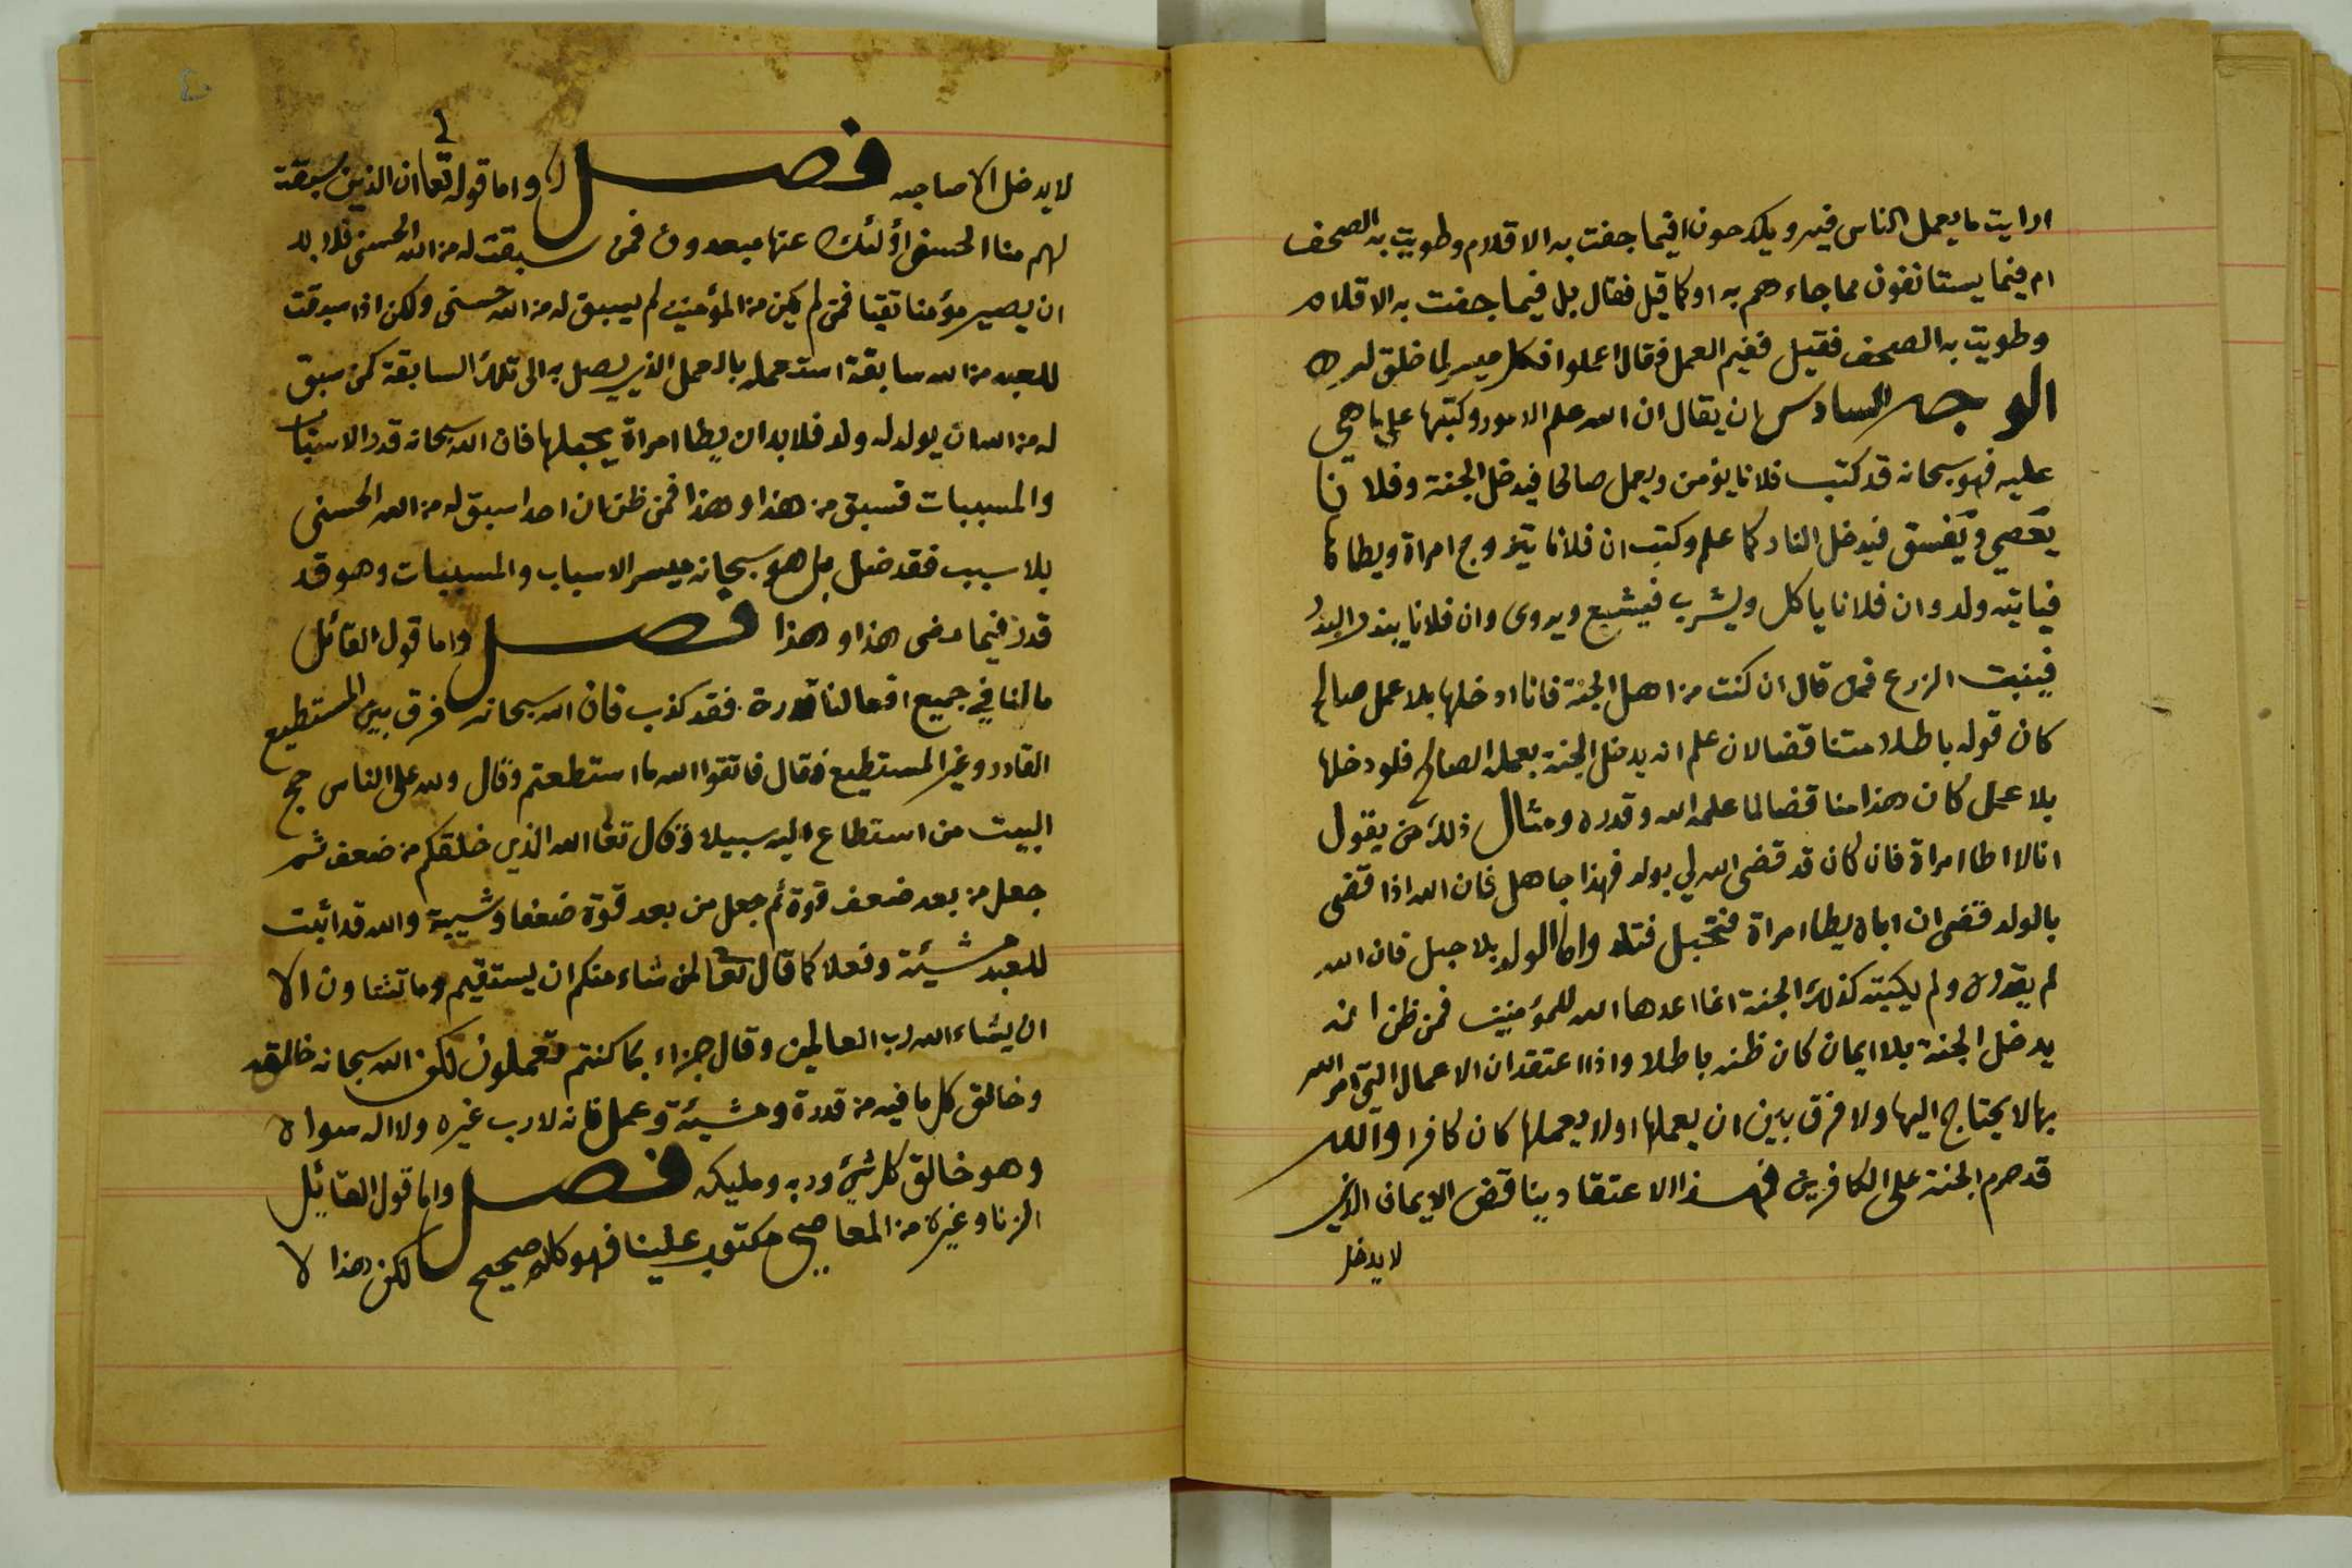 ارايت ما يعمل الناس فيه ويكدحون افيما جفت به الاقلام وطويت به الصحف
ام فيما يستانفون مما جاءهم به اوكما قيل فقال بل فيما جفت به الاقلام
وطويت به الصحف فقيل ففيم العمل فقال اعملوا فكل ميسر لما خلق له
الوجه السادس ان يقال ان الله علم الامور وكتبها على ما هي
عليه فهو سبحانه قد كتب فلانا يؤمن ويعمل صالحا فيدخل الجنة وفلانا
يعصي ويفسق فيدخل النار كما علم وكتب ان فلانا يتزوج امراة ويطاها
فياتيه ولد وان فلانا ياكل ويشرب فيشبع ويروى وان فلانا يبذر البذر
فينبت الزرع فمن قال ان كنت من اهل الجنة فانا ادخلها بلا عمل صالح
كان قوله باطلا متناقضا لان علم انه يدخل الجنة بعمله الصالح فلو دخلها
بلا عمل كان هذا مناقضا لما علمه الله وقدره ومثال ذلك من يقول
انا لا اطا امراة فان كان قد قضى الله لي بولد فهذا جاهل فان الله اذا قضى
بالولد قضى ان اباه يطا امراة فتحبل فتلد واما الولد بلا حبل فان الله
لم يقدره ولم يكتبه كذلك الجنة انما اعدها الله للمؤمنين فمن ظن انه
يدخل الجنة بلا ايمان كان ظنه باطلا واذا اعتقد ان الاعمال التي امر الله
بها لا يحتاج اليها ولا فرق بين ان يعملها او لا يعملها كان كافرا والله
قد حرم الجنة على الكافرين فهذا الاعتقاد يناقض الايمان الذي
لا يدخل
لا يدخل الا صاحبه فصل واما قوله تعا ان الذين سبقة
لهم منا الحسنى اؤلئك عنها مبعدون فمن سبقت له من الله الحسنى فلا بد
ان يصير مؤمنا تقيا فمن لم يكن من المؤمنين لم يسبق له من الله حسنى ولكن اذا سبقت
للعبد من الله سابقة استعمله بالعمل الذي يصل به الى تلك السابقة كمن سبق
له من الله ان يولد له ولد فلا بد ان يطا امراة يحبلها فان الله سبحانه قدر الاسباب
والمسببات فسبق من هذا وهذا فمن ظن ان احدا سبق له من الله الحسنى
بلا سبب فقد ضل بل هو سبحانه ميسر الاسباب والمسببات وهو قد
قدر فيما مضى هذا وهذا فصل واما قول القائل
ما لنا في جميع افعالنا قدرة فقد كذب فان الله سبحانه فرق بين المستطيع
القادر وغير المستطيع فقال فاتقوا الله ما استطعتم وقال ولله على الناس حج
البيت من استطاع اليه سبيلا وقال تعا الله الذي خلقكم من ضعف ثم
جعل من بعد ضعف قوة ثم جعل من بعد قوة ضعفا وشيبة والله قد اثبت
للعبد مشيئة وفعلا كما قال تعا لمن شاء منكم ان يستقيم وما تشاون الا
ان يشاء الله رب العالمين وقال جزاء بما كنتم تعملون لكن الله سبحانه خالقه
وخالق كل ما فيه من قدرة ومشيئة وعمل فانه لا رب غيره ولا اله سواه
وهو خالق كل شئ وربه ومليكه فصل واما قول القائل
الزنا وغيره من المعاصي مكتوب علينا فهو كلام صحيح لكن هذا لا